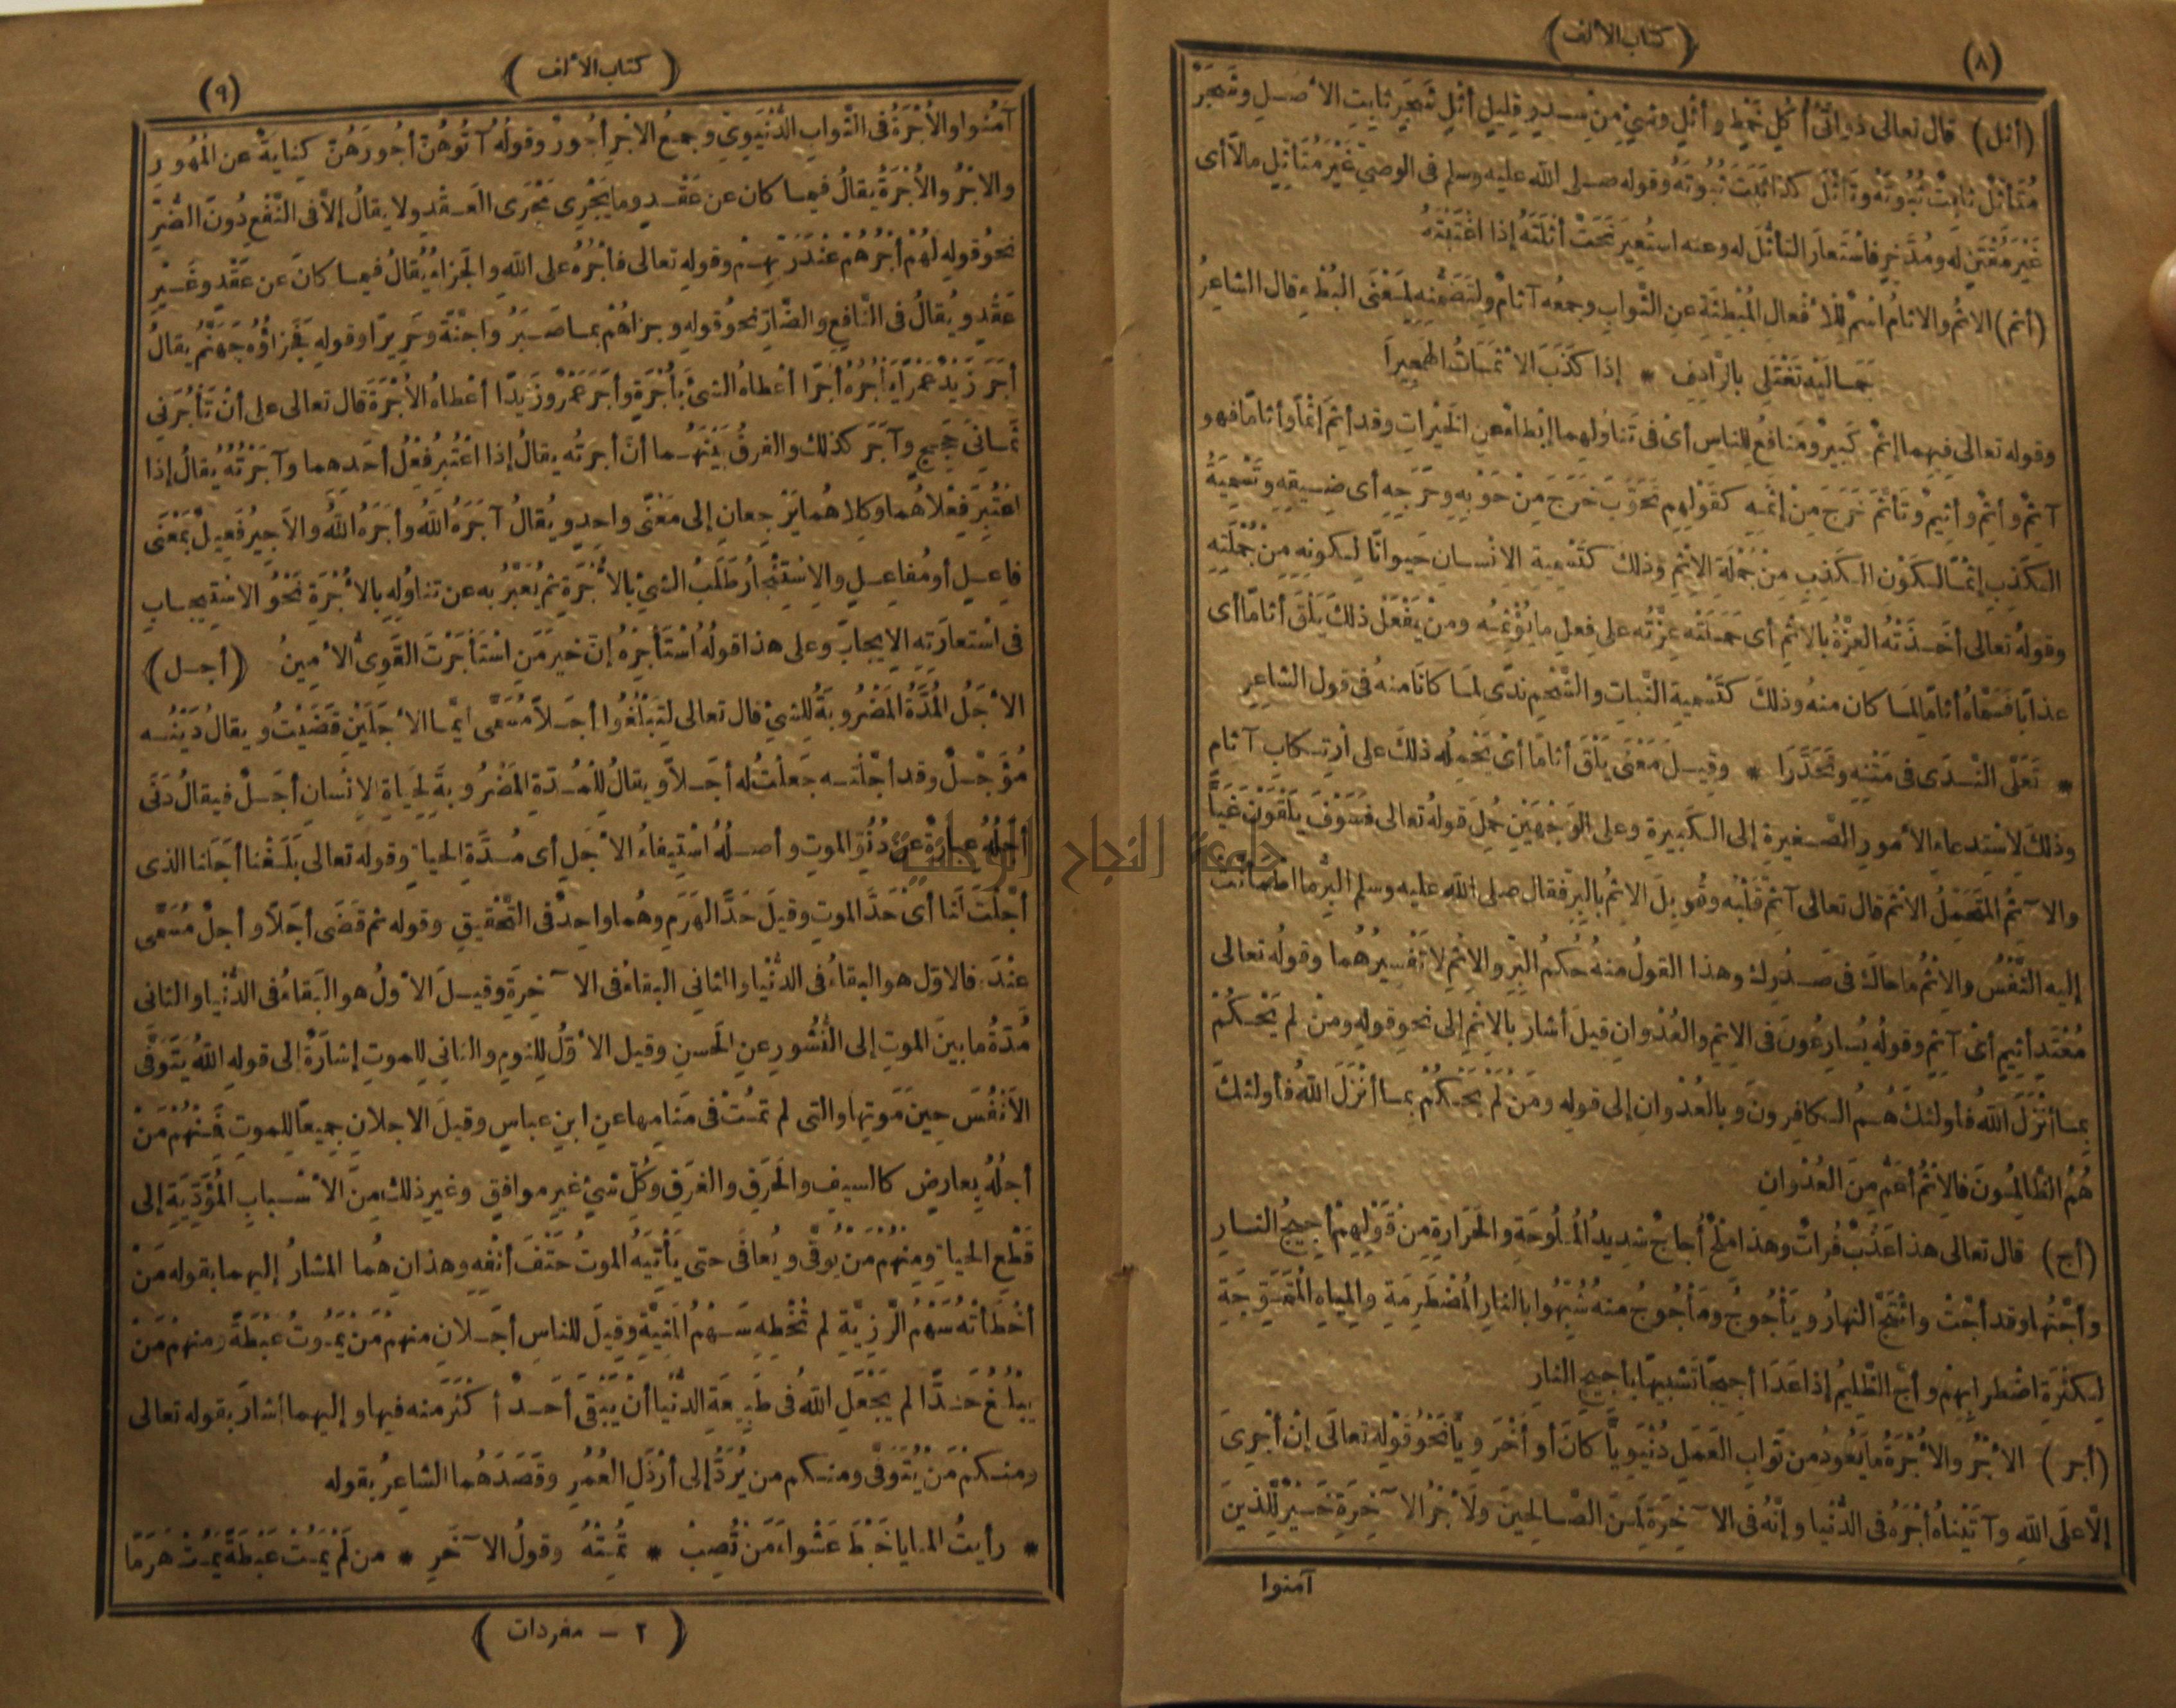 (٨)
(كتاب الألف)
(أثل) قال تعالى ذواتى أكل خمط وأثل وشئ من سدر قليل أثل شجر ثابت الأصل وشجر
متأثل ثابت ثبوته وتأثل كذا ثبت ثبوته وقوله صلى الله عليه وسلم فى الوصى غير متأثل مالا أى
غير مقتن له ومدخر فاستعار التأثل له وعنه استعير نحت أثلته إذا اغتبته
(أثم) الاثم والاثام اسم للأفعال المبطئة عن الثواب وجمعه آثام ولتضمنه لمعنى البطء قال الشاعر
جمالية تغتلى بالرادف * إذا كذب الآثمات الهجيرا
وقوله تعالى فيهما إثم كبير ومنافع للناس أى فى تناولهما إبطاء عن الخيرات وقد أثم إثما وأثاما فهو
آثم وأثم وأثيم وتأثم خرج من إثمه كقولهم تحوب خرج من حوبه وحرجه أى ضيقه وتسمية
الكذب إثما لكون الكذب من جملة الإثم وذلك كتسمية الإنسان حيوانا لكونه من جملته
وقوله تعالى أخذته العزة بالاثم أى حملته عزته على فعل ما يؤثمه ومن يفعل ذلك يلق أثاما أى
عذابا فسماه أثاما لما كان منه وذلك كتسمية النبات والشحم ندى لما كانا منه فى قول الشاعر
* تعلى الندى فى متنه وتحدرا * وقيل معنى يلق أثاما أى يحمله ذلك على ارتكاب آثام
وذلك لاستدعاء الأمور الصغيرة إلى الكبيرة وعلى الوجهين حمل قوله تعالى فسوف يلقون غيا
والآثم المتحمل الاثم قال تعالى آثم قلبه وقوبل الإثم بالبر فقال صلى الله عليه وسلم البر ما اطمأنت
إليه النفس والإثم ما حاك فى صدرك وهذا القول منه حكم البر والإثم لا تفسيرهما وقوله تعالى
معتد أثيم أى آثم وقوله يسارعون فى الإثم والعدوان قيل أشار بالإثم إلى نحو قوله ومن لم يحكم
بما أنزل الله فأولئك هم الكافرون وبالعدوان إلى قوله ومن لم يحكم بما أنزل الله فأولئك
هم الظالمون فالإثم أعم من العدوان
(أج) قال تعالى هذا عذب فرات وهذا ملح أجاج شديد الملوحة والحرارة من قولهم أجيج النار
وأجتها وقد أجت وائتج النهار ويأجوج ومأجوج منه شبهوا بالنار المضطرمة والمياه المتموجة
لكثرة اضطرابهم وأج الظليم إذا عدا أجيجا تشبيها بأجيج النار
(أجر) الأجر والأجرة ما يعود من ثواب العمل دنيويا كان أو أخرويا نحو قوله تعالى إن أجرى
إلا على الله وآتيناه أجره فى الدنيا وإنه فى الآخرة لمن الصالحين ولأجر الآخرة خير للذين
آمنوا
(كتاب الألف)
(٩)
آمنوا والأجرة فى الثواب الدنيوى وجمع الأجر أجور وقوله آتوهن أجورهن كناية عن المهور
والاجر والأجرة يقال فيما كان عن عقد وما يجرى مجرى العقد ولا يقال إلا فى النفع دون الضر
نحو قوله لهم أجرهم عند ربهم وقوله تعالى فأجره على الله والجزاء يقال فيما كان عن عقد وغير
عقد ويقال فى النافع والضار نحو قوله وجزاهم بما صبروا جنة وحريرا وقوله فجزاؤه جهنم يقال
أجر زيد عمرا يأجره أجرا أعطاه الشئ بأجرة وآجر عمرو زيدا أعطاه الأجرة قال تعالى على أن تأجرنى
ثمانى حجج وآجر كذلك والفرق بينهما أن أجرته يقال إذا اعتبر فعل أحدهما وآجرته يقال إذا
اعتبر فعلاهما وكلاهما يرجعان إلى معنى واحد ويقال آجره الله وأجره الله والأجير فعيل بمعنى
فاعل أو مفاعل والاستئجار طلب الشئ بالأجرة ثم يعبر به عن تناوله بالأجرة نحو الاستيجاب
فى استعارته الإيجاب وعلى هذا قوله استأجره إن خير من استأجرت القوى الأمين (أجل)
الأجل المدة المضروبة للشئ قال تعالى لتبلغوا أجلا مسمى أيما الأجلين قضيت ويقال دينه
مؤجل وقد أجلته جعلت له أجلا ويقال للمدة المضروبة لحياة الإنسان أجل فيقال دنى
أجله عبارة عن دنو الموت وأصله استيفاء الأجل أى مدة الحياة وقوله تعالى بلغنا أجلنا الذى
أجلت لنا أى حد الموت وقيل حد الهرم وهما واحد فى التحقيق وقوله ثم قضى أجلا وأجل مسمى
عنده فالاول هو البقاء فى الدنيا والثانى البقاء فى الآخرة وقيل الأول هو البقاء فى الدنيا والثانى
مدة ما بين الموت إلى النشور عن الحسن وقيل الأول للنوم والثانى للموت إشارة إلى قوله الله يتوفى
الأنفس حين موتها والتى لم تمت فى منامها عن ابن عباس وقيل الاجلان جميعا للموت فمنهم من
أجله بعارض كالسيف والحرق والغرق وكل شئ غير موافق وغير ذلك من الأسباب المؤدية إلى
قطع الحياة ومنهم من يوقى ويعافى حتى يأتيه الموت حتف أنفه وهذان هما المشار إليهما بقوله من
أخطأته سهم الرزية لم تخطه سهم المنية وقيل للناس أجلان منهم من يموت عبطة ومنهم من
يبلغ حدا لم يجعل الله فى طبيعة الدنيا أن يبقى أحد أكثر منه فيها وإليهما أشار بقوله تعالى
ومنكم من يتوفى ومنكم من يرد إلى أرذل العمر وقصدهما الشاعر بقوله
* رأيت المنايا خبط عشواء من تصب * تمته وقول الآخر * من لم يمت عبطة يمت هرما
(٢ - مفردات)
جامعة النجاح الوطنية